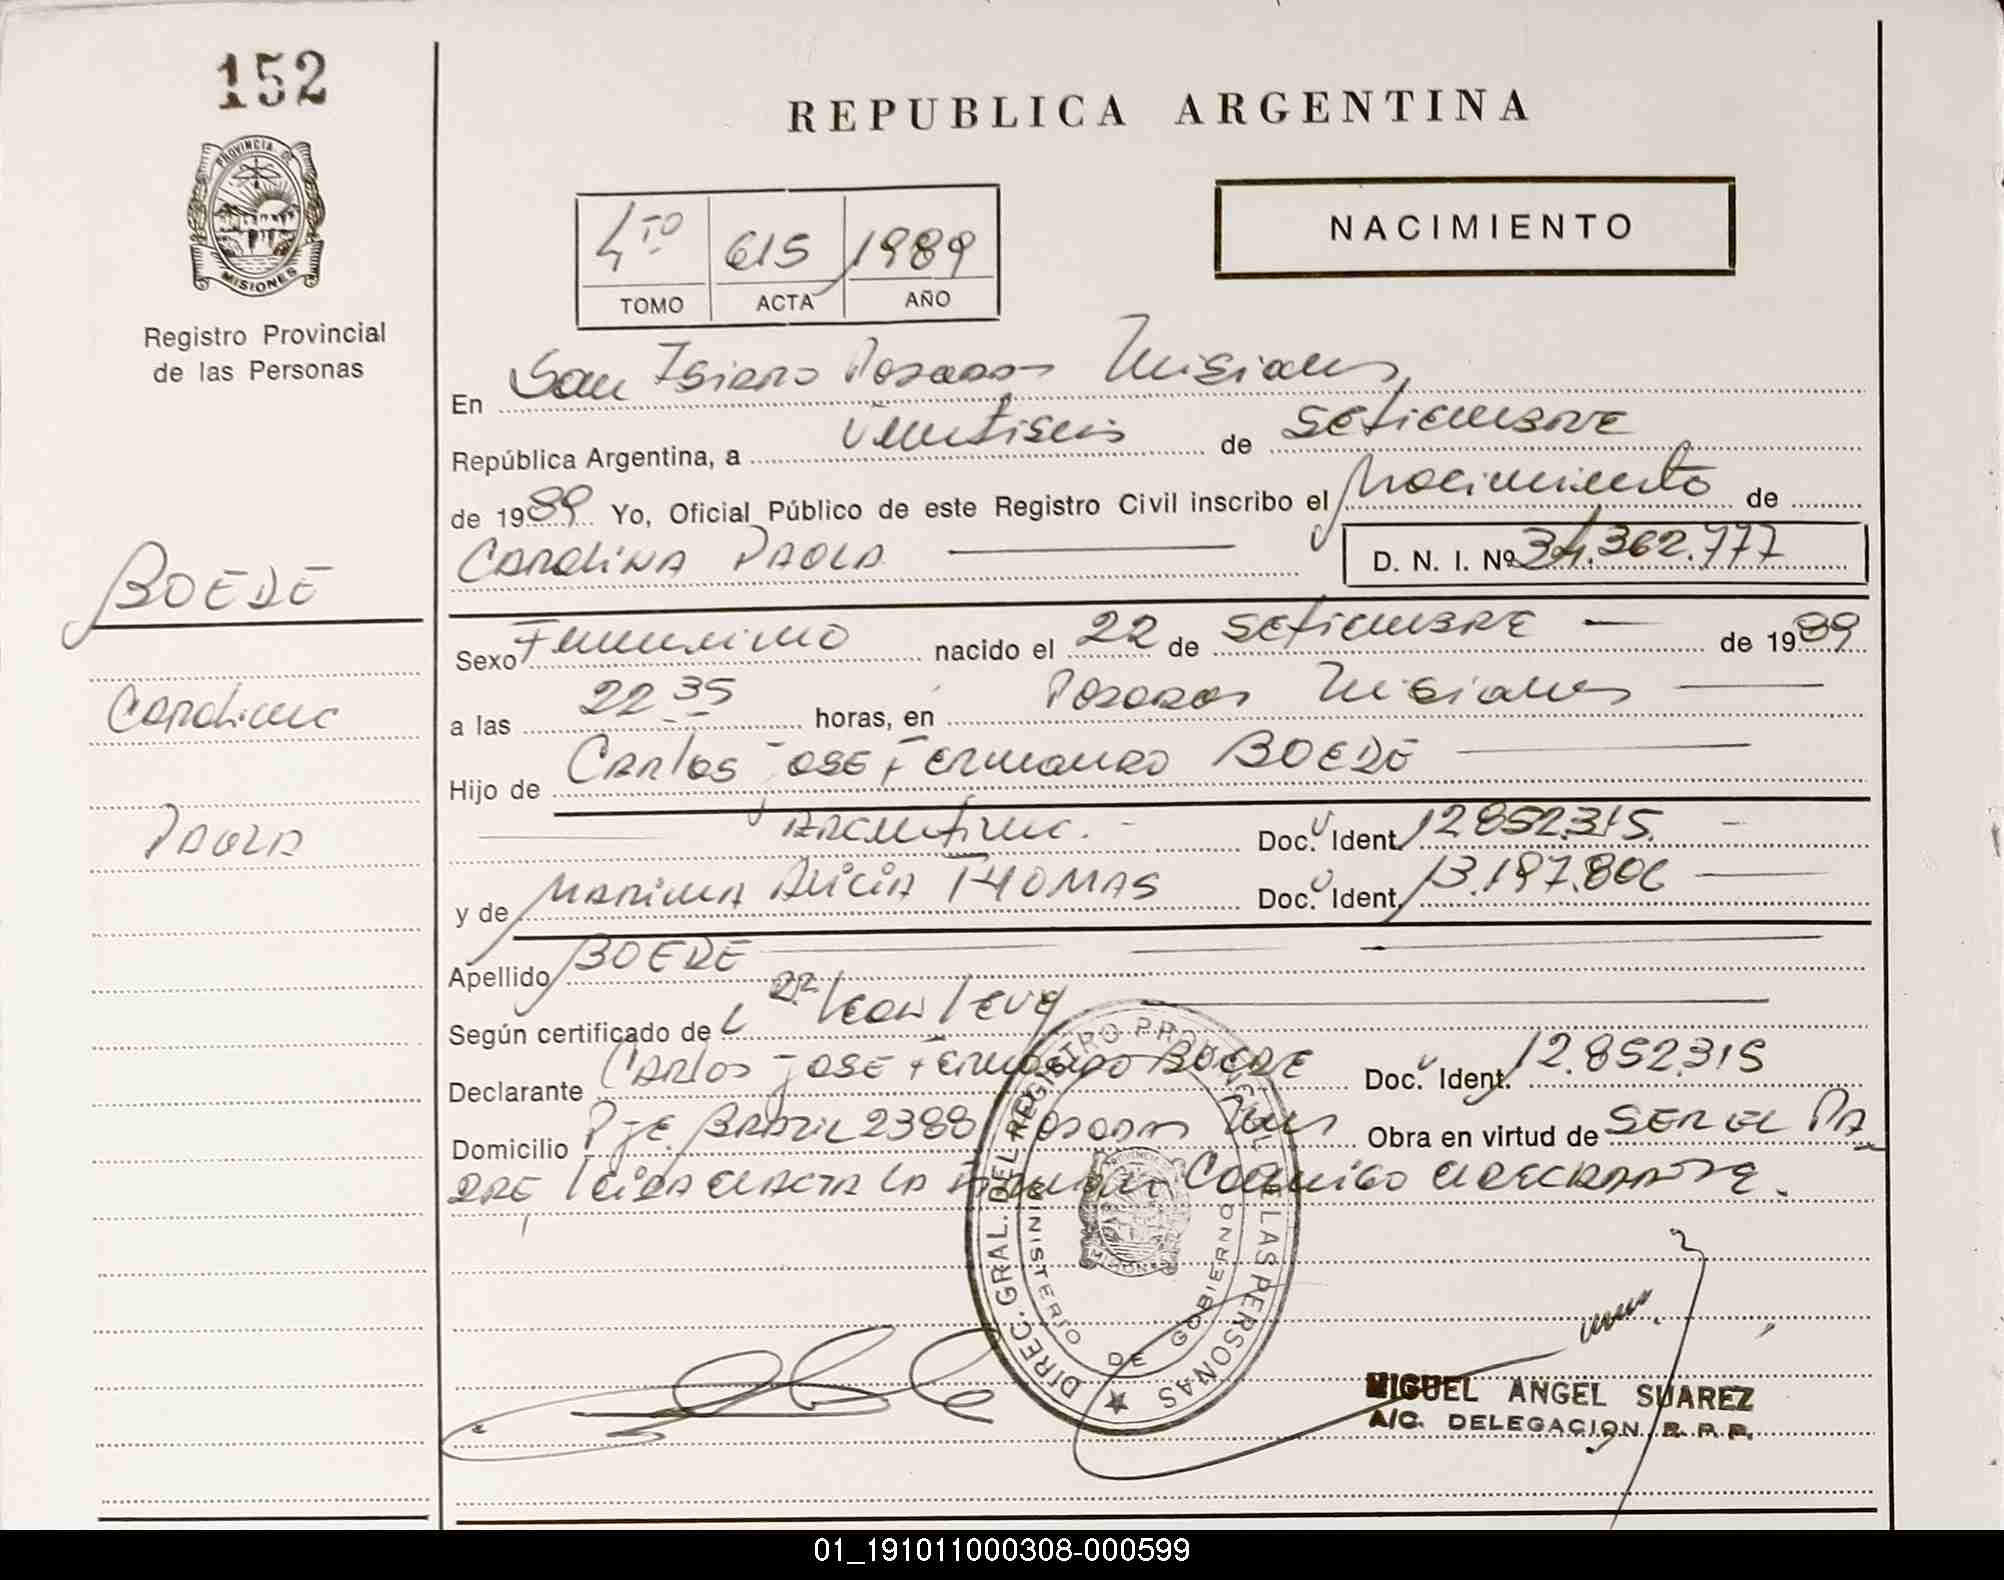 152
PROVINCIA DE
MISIONES
Registro Provincial
de las Personas
BOEDE
Carolina
PAOLA
REPUBLICA ARGENTINA
4TO 615 1989
TOMO ACTA AÑO
NACIMIENTO
En San Isidro Posadas Misiones,
República Argentina, a veintiseis de SETIEMBRE
de 1989 Yo, Oficial Público de este Registro Civil inscribo el Nacimiento de
CAROLINA PAOLA D. N. I. Nº 34.362.777
Sexo Femenino nacido el 22 de SETIEMBRE de 1989
a las 22 35 horas, en Posadas Misiones
Hijo de Carlos JOSE FERNANDO BOEDE
ARGENTINO. Doc. Ident. 12852315.
y de MARINA ALICIA THOMAS Doc. Ident. 13.197.806
Apellido BOEDE
Según certificado de
Declarante CARLOS JOSE FERNANDO BOEDE Doc. Ident. 12.852315
Domicilio PJE. BRAZIL 2388 Posadas Mnes Obra en virtud de SER EL PA
DRE leida el ACTA LA FIRMAN Conmigo el DECLARANTE.
DIREC. GRAL. DEL REGISTRO PROVINCIAL DE LAS PERSONAS
MINISTERIO DE GOBIERNO
MISIONES
MIGUEL ANGEL SUAREZ
A/C. DELEGACION R. P. P.
01_191011000308-000599